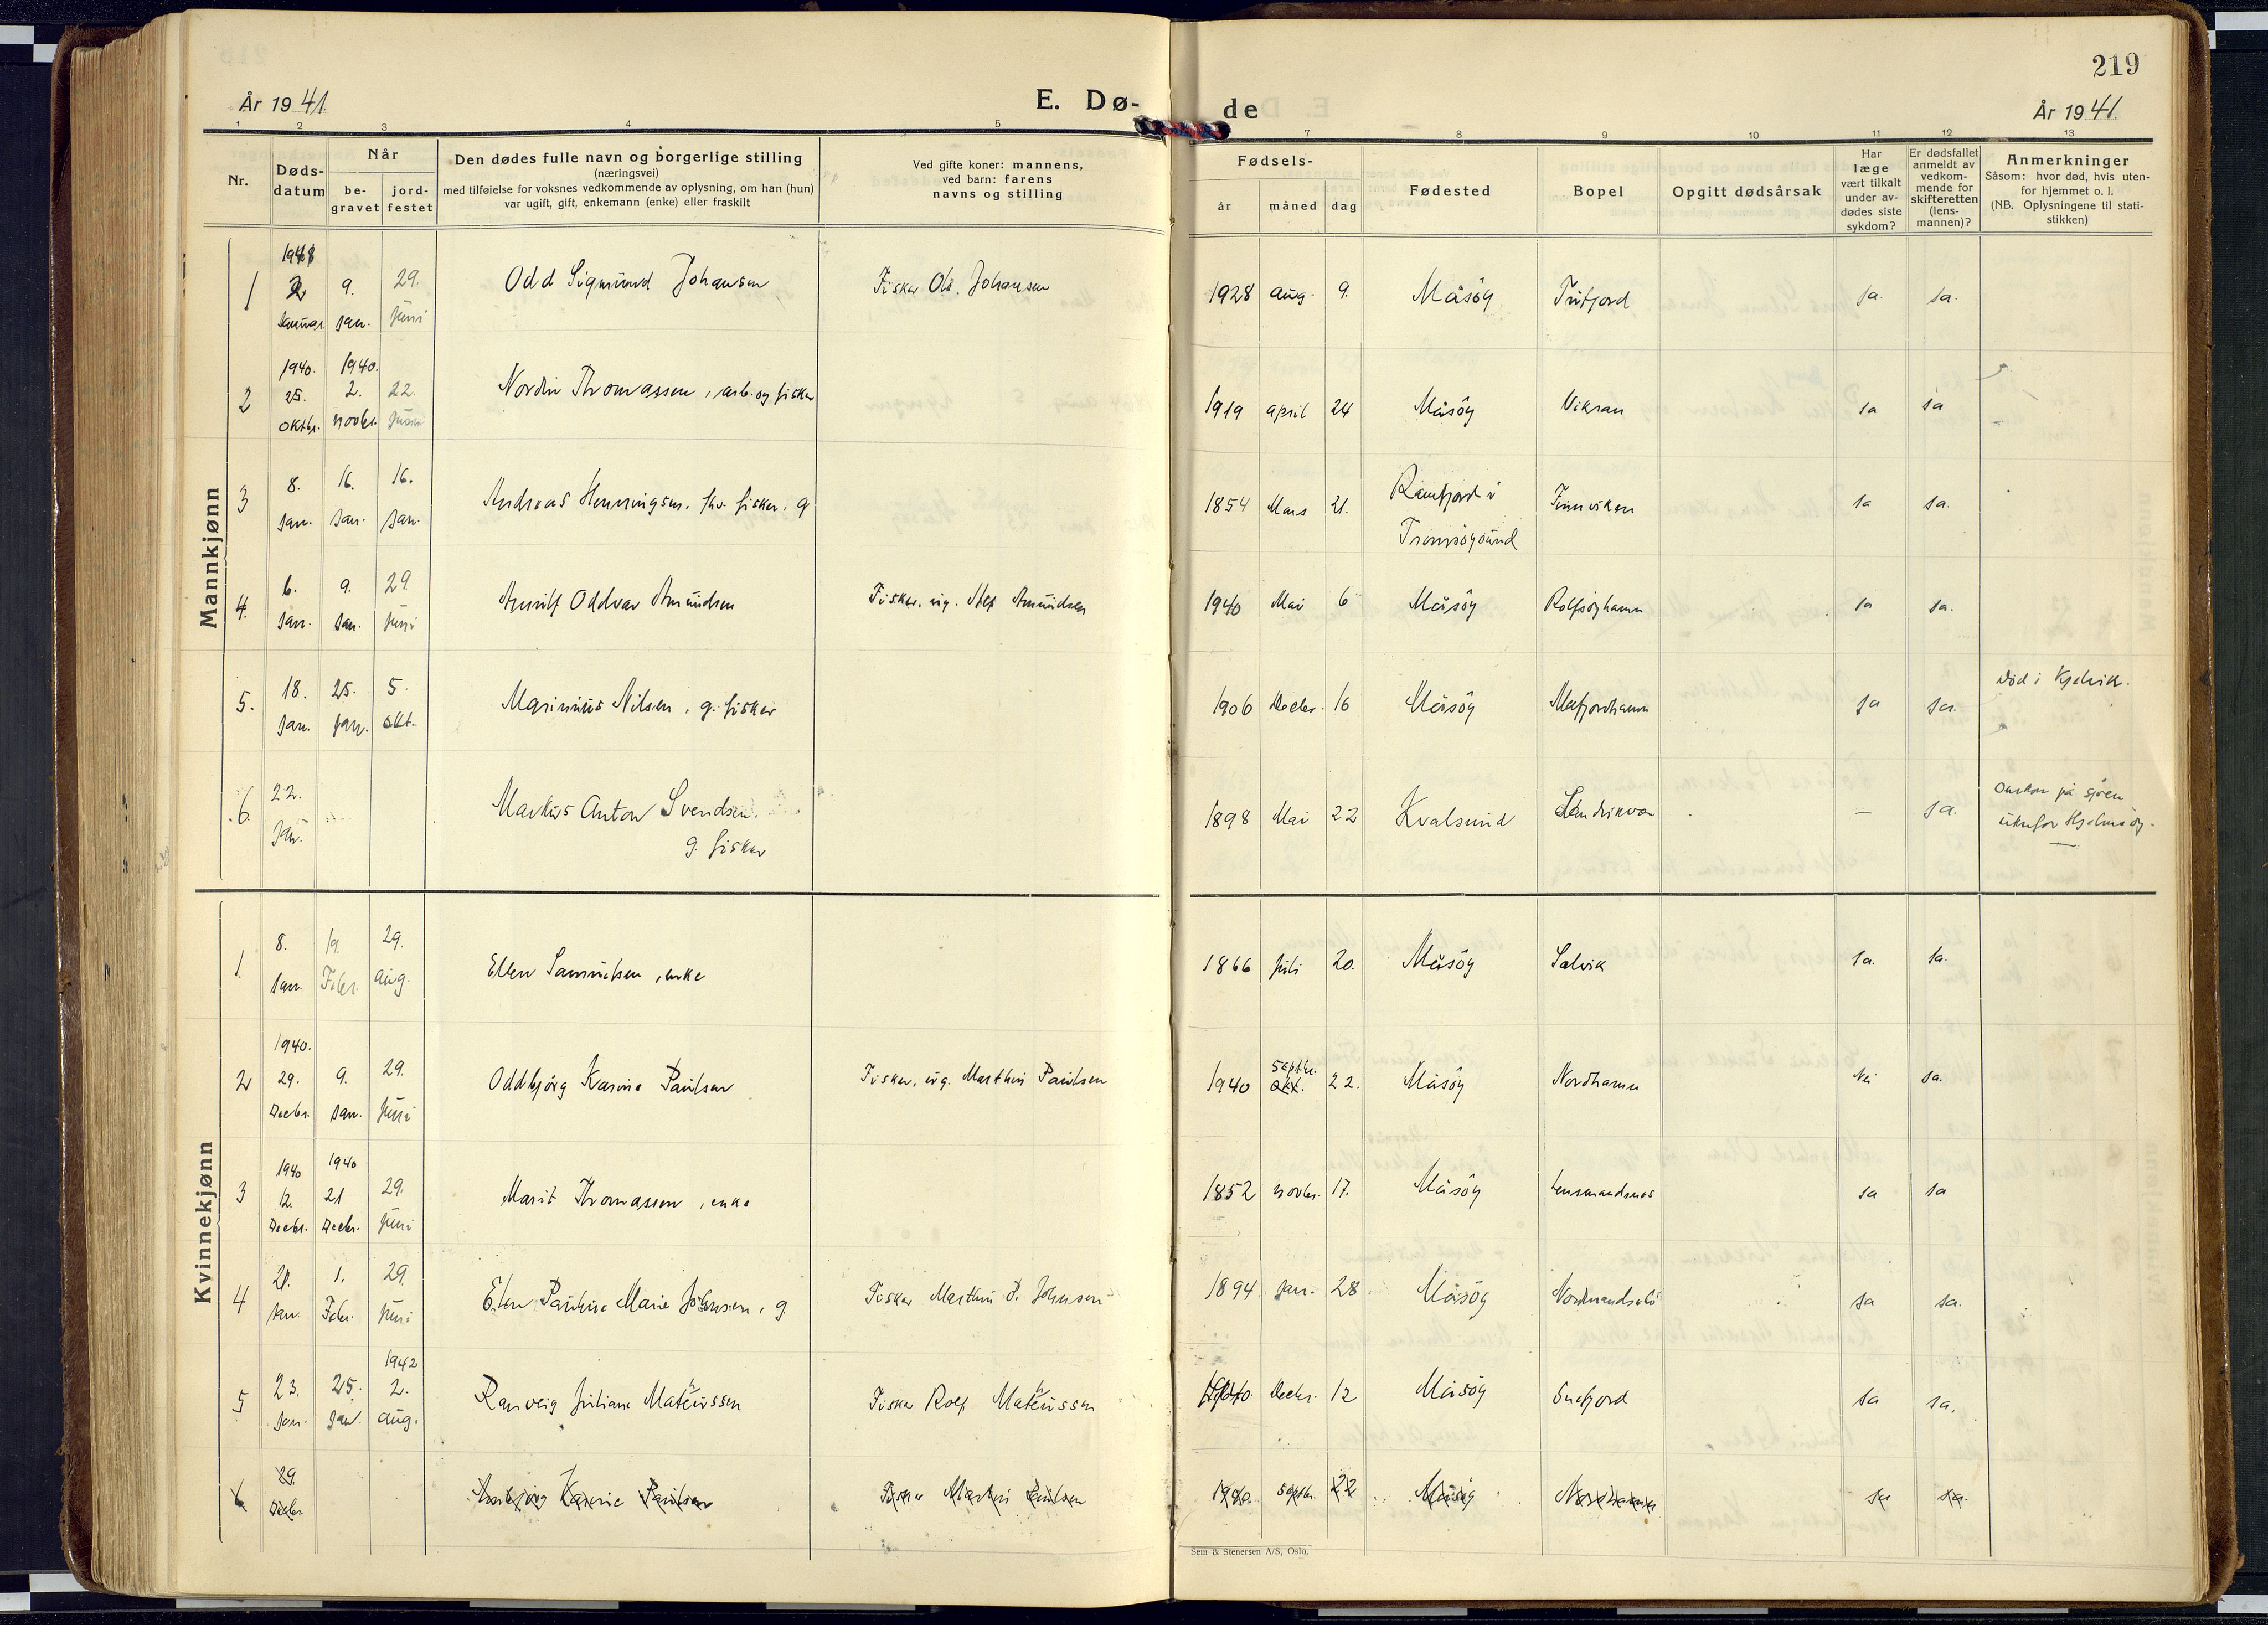 219
År 1941.
E. Dø-
de
År 1941.
1 2 3 4 5 7 8 9 10 11 12 13
Nr.
Døds-
datum
Når
be-
gravet
jord-
festet
Den dødes fulle navn og borgerlige stilling
(næringsvei)
med tilføielse for voksnes vedkommende av oplysning, om han (hun)
var ugift, gift, enkemann (enke) eller fraskilt
Ved gifte koner: mannens,
ved barn: farens
navns og stilling
Fødsels-
år måned dag
Fødested
Bopel
Opgitt dødsårsak
Har
læge
vært tilkalt
under av-
dødes siste
sykdom?
Er dødsfallet
anmeldt av
vedkom-
mende for
skifteretten
(lens-
mannen)?
Anmerkninger
Såsom: hvor død, hvis uten-
for hjemmet o. l.
(NB. Oplysningene til stati-
stikken)
Mannkjønn
1 9. 29. Odd Sigmund Johansen Fisker Ole Johansen 1928 aug. 9. Måsöy Trufjord ja. ja.
Januar Jan. Juni
1940. 1940.
2 25. 2. 22. Nordin Thomassen, arb. og fisker 1919 april 24 Måsöy Vikran ja ja
oktbr. novbr. Juni
3 8. 16. 16. Andreas Henningsen, fhv. fisker, g 1854 Mars 21. Ramfjord i Finnviken ja ja.
Jan. Jan. Jan. Tromsöysund
4. 6. 9. 29. Arnulf Oddvar Amundsen Fisker, ug. Alf Amundsen 1940 Mai 6 Måsöy Rolfsöyhamn ja ja.
Jan. Jan. Juni
5. 18. 25. 5. Marinius Nilsen, g. fisker 1906 Decbr. 16 Måsöy Mefjordhamn ja ja. Död i Kjelvik.
Jan. Jan. okt.
6. 22. Markus Anton Svendsen. 1898 Mai 22 Kvalsund — ja. Omkom på sjöen
Jan. g. fisker utenfor Hjelmsöy.
Kvinnekjønn
1. 8. 19. 29. Ellen Samuelsen, enke 1866 Juli 20. Måsöy Selvik ja. ja.
Jan. Febr. aug.
1940.
2 29. 9. 29. Oddbjörg Karine Paulsen Fisker, ug. Marthin Paulsen 1940 septbr. okt. 22. Måsöy Nordhamn Nei ja.
Decbr. Jan. Juni
1940 1940
3 12. 21 29. Marit Thomassen, enke 1852 novbr. 17. Måsöy Lensmandsnes ja ja
Decbr. Decbr. Juni
4 21. 1. 29. Elen Pauline Marie Johnsen, g. Fisker Marthin P. Johnsen 1894 Jan. 28 Måsöy ja ja.
Jan. Febr. Juni
1942
5 23. 25. 2. Ranveig Juliane Mateussen Fisker Rolf Mateussen 1940 Decbr. 12 Måsöy Snefjord ja ja.
Jan. Jan. aug.
6 29. Karine Paulsen Fisker Marthin Paulsen 1940. septbr. 22 Måsöy Nordhamn ja ja.
Decbr.
Sem & Stenersen A/S, Oslo.